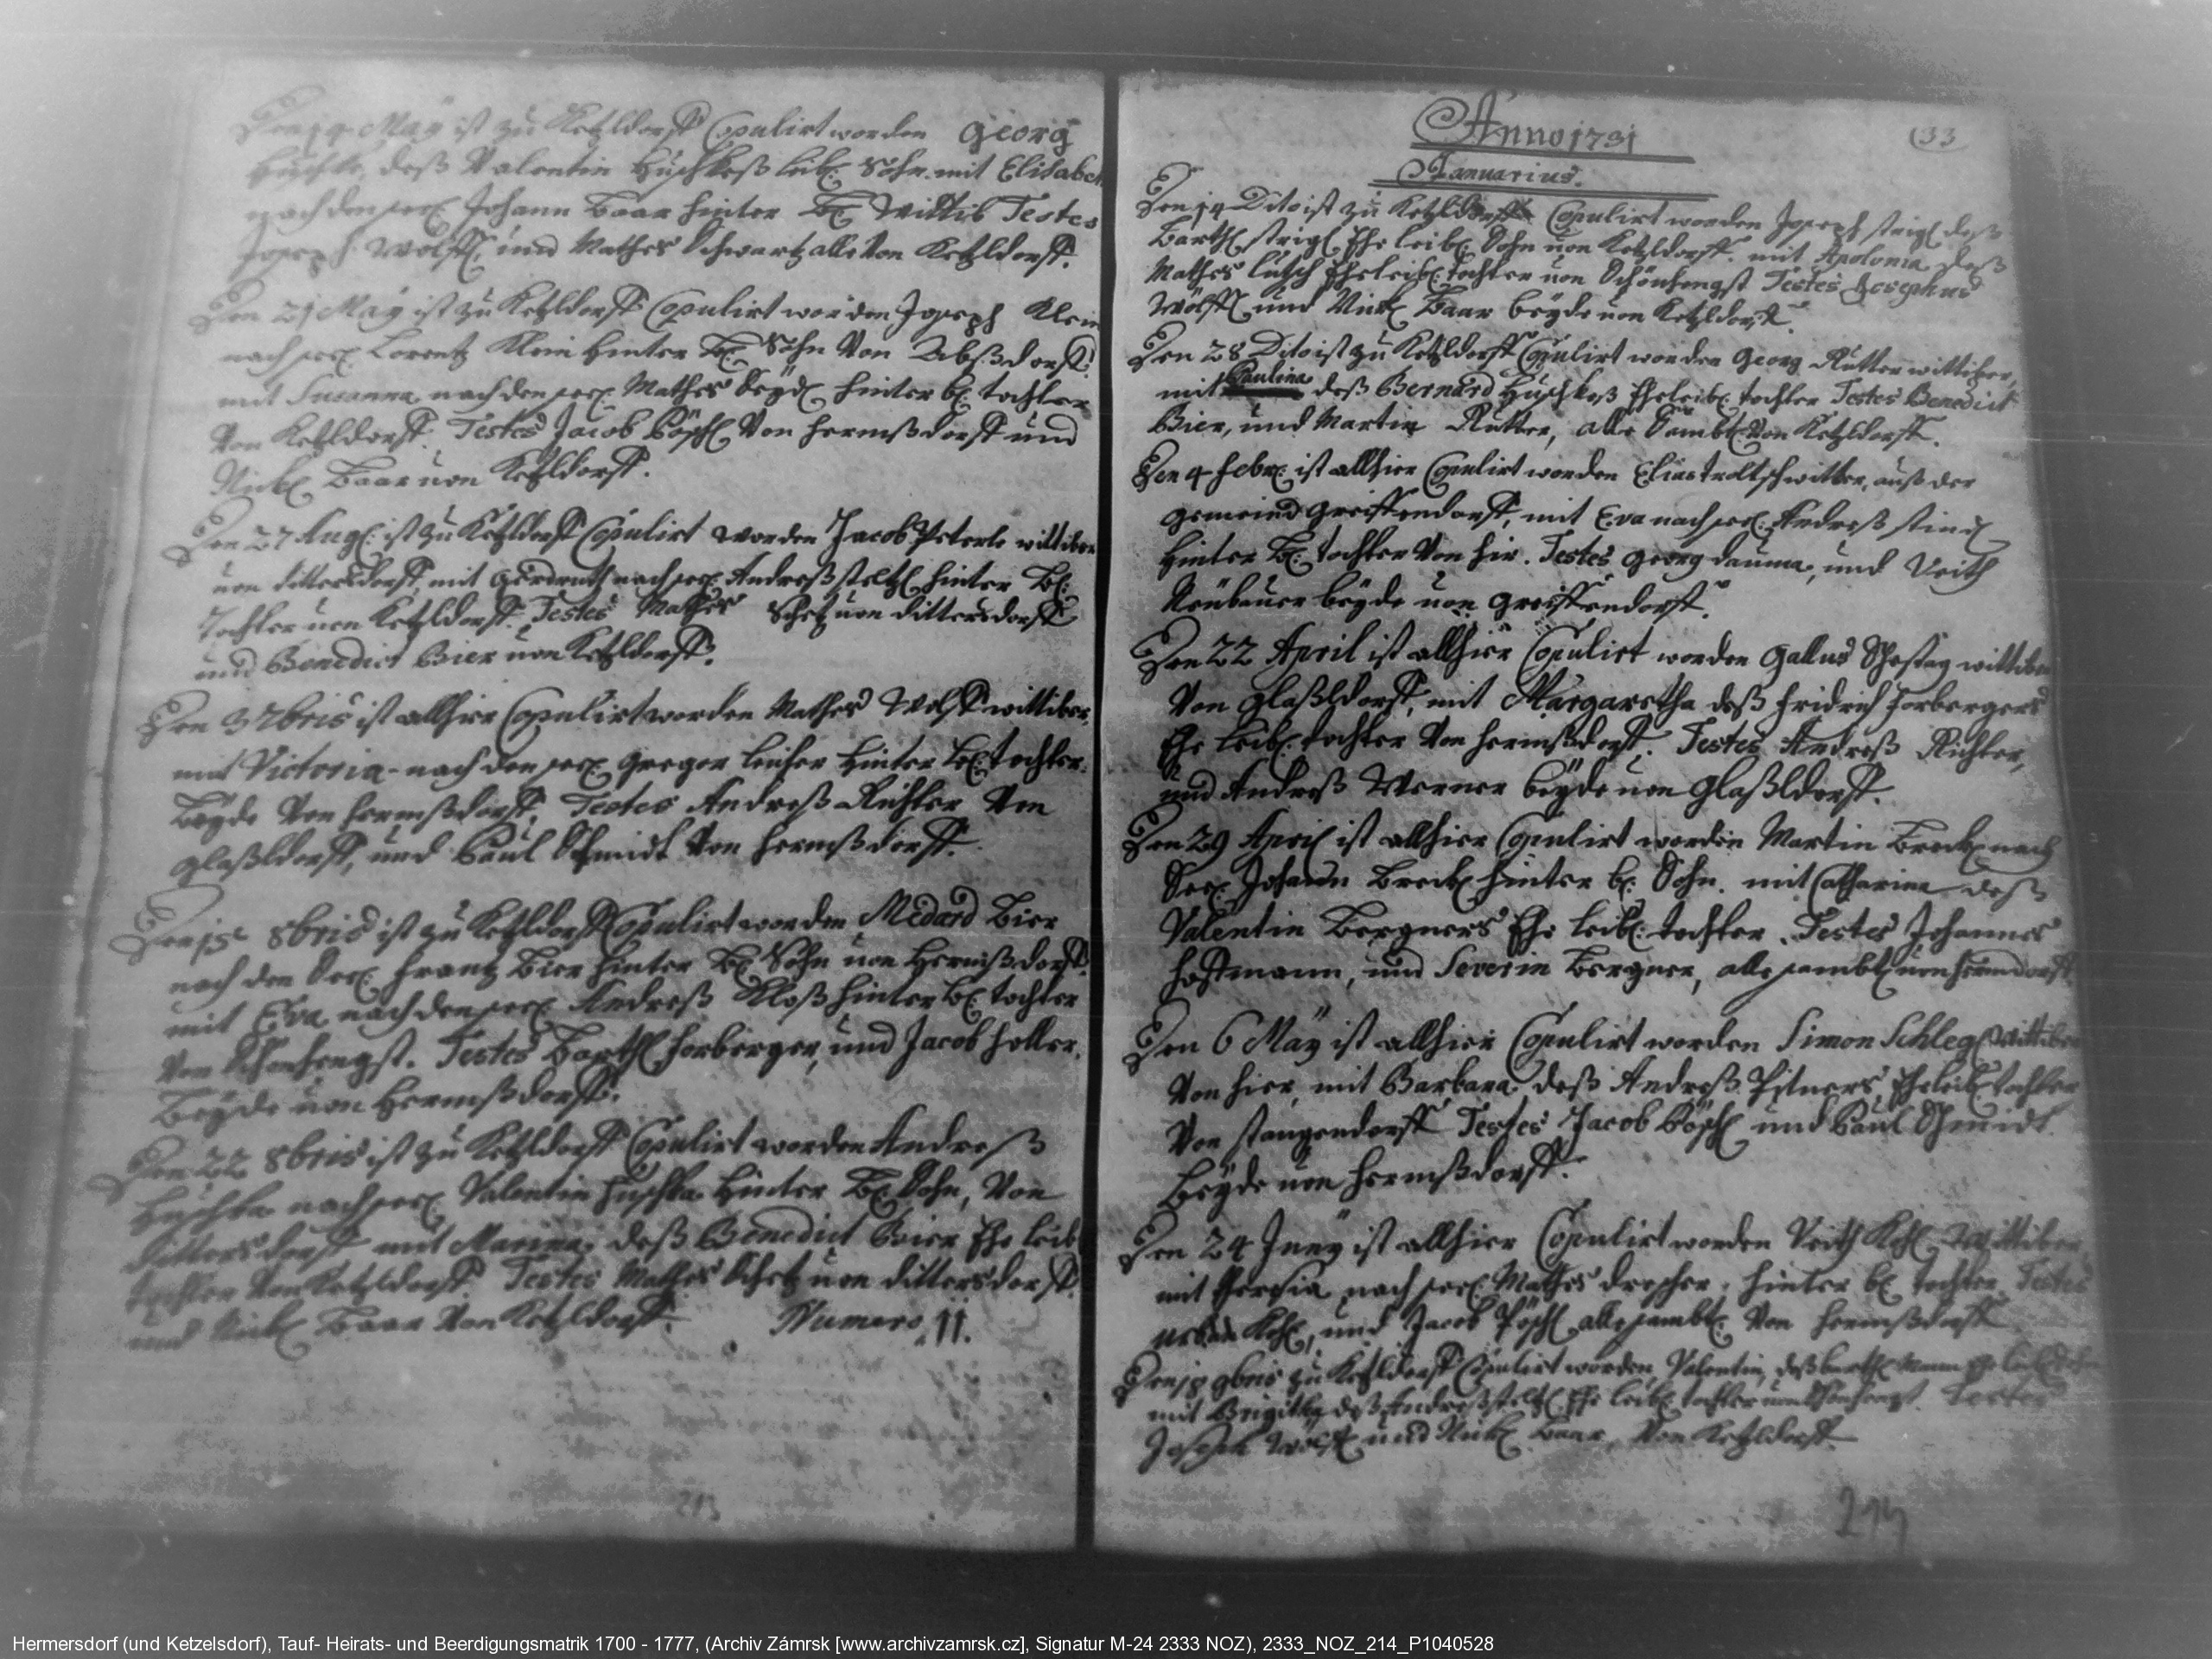 Den 14 May ist zu Ketzldorff Copulirt worden Georg
Huschka, deß Valentin Huschkaß leibl. Sohn mit Elisabet
nach den seel. Johann Baar hinter bl. Wittib Testes
Joseph Wolff und Mathes Schwartz alle Von Ketzldorff.
Den 21 May ist zu Ketzldorff Copulirt worden Joseph Klein
nach seel. Lorentz Klein hinter bl. Sohn Von Abßdorff
mit Susanna nach den seel. Mathes Seydl hinter bl. tochter
Von Ketzldorff. Testes Jacob Pöschl Von Hermßdorff und
Nickl Baar von Ketzldorff.
Den 27 Augl. ist zu Ketzldorff Copulirt worden Jacob Peterle wittiber
von dittersdorff, mit Gerdruth nach seel. Andreß steltzl hinter bl.
Tochter von Ketzldorff Testes Mathes Schetz von dittersdorff
und Benedict Bier von Ketzldorff.
Den 3 7bris ist allhier Copulirt worden Mathes Wolff wittiber,
mit Victoria nach den seel. Gregor hinter bl. tochter
Beyde Von Hermßdorff. Testes Andreß Richter Von
Glaßldorff, und Paul Schmidt Von Hermßdorff.
Den 15 8bris ist zu Ketzldorff Copulirt worden Medard Bier
nach den Seel. Frantz Bier hinter bl. Sohn von Hermßdorff
mit Eva nach den seel. Andreß Kloß hinter bl. tochter
Von Schönhengst. Testes Barthl Forberger, und Jacob Holler
Beyde von Hermßdorff.
Den 22 8bris ist zu Ketzldorff Copulirt worden Andreß
Huschka nach seel. Valentin Huschka hinter bl. Sohn, Von
dittersdorff mit Marina, deß Benedict Bier Ehe leibl
tochter Von Ketzldorff. Testes Mathes Schetz von dittersdorff
und Nickl Baar Von Ketzldorff. Numero 11.
213
Anno 1731
133
Januarius.
Den 14 Dito ist zu Ketzldorff Copulirt worden Joseph strigl deß
Barthl strigl Ehe leibl. Sohn von Ketzldorff. mit Apolonia deß
Mathes Lutsch Eheleibl. tochter von Schönhengst Testes Josephus
Wolff und Nickl Baar beyde von Ketzldorff.
Den 28 Dito ist zu Ketzldorff Copulirt worden Georg Rutter wittiber,
mit Paulina deß Bernard Huschkaß Eheleibl. tochter Testes Benedict
Bier, und Martin Rutter, alle Sambt. Von Ketzldorff.
Den 4 Febr. ist allhier Copulirt worden Elias wittber, auß der
Gemeind Greiffendorff, mit Eva nach seel. Andreß stindl
hinter bl. tochter Von hir. Testes Georg dauma, und Veith
Neubauer beyde von Greiffendorff.
Den 22 April ist allhier Copulirt worden Gallus Schestag wittiber
Von Glaßldorff, mit Margaretha deß Fridrich Forbergers
Ehe leibl. tochter Von Hermßdorff. Testes Andreß Richter,
und Andreß Werner beyde von Glaßldorff.
Den 29 April ist allhier Copulirt worden Martin Breckl nach
Seel. Johann Breckl hinter bl. Sohn. mit Catharina deß
Valentin Bergners Ehe leibl. tochter. Testes Johannes
Hoffmann, und Severin Bergner, alle sambtl von Hermdorff
Den 6 May ist allhier Copulirt worden Simon Schlegl wittiber
Von hier, mit Barbara deß Andreß Pitners Eheleibl. tochter
Von stangendorff Testes Jacob Pöschl und Paul Schmidt
beyde von Hermßdorff.
Den 24 Juny ist allhier Copulirt worden Veith Kohl Wittiber
mit Theresia nach seel. Mathes drescher hinter bl tochter Testes
Urban Kohl, und Jacob Pöschl alle sambt. Von Hermßdorff
Den 18 9bris zu Ketzldorff Copulirt worden, Valentin, deß barthl Ehe leibl
mit Brigitha deß Andreß steltzl Ehe leibl. tochter von Schönhengst. Testes
Joseph Wolff und Nickl Baar, Von Ketzldorff.
214
Hermersdorf (und Ketzelsdorf), Tauf- Heirats- und Beerdigungsmatrik 1700 - 1777, (Archiv Zámrsk [www.archivzamrsk.cz], Signatur M-24 2333 NOZ), 2333_NOZ_214_P1040528